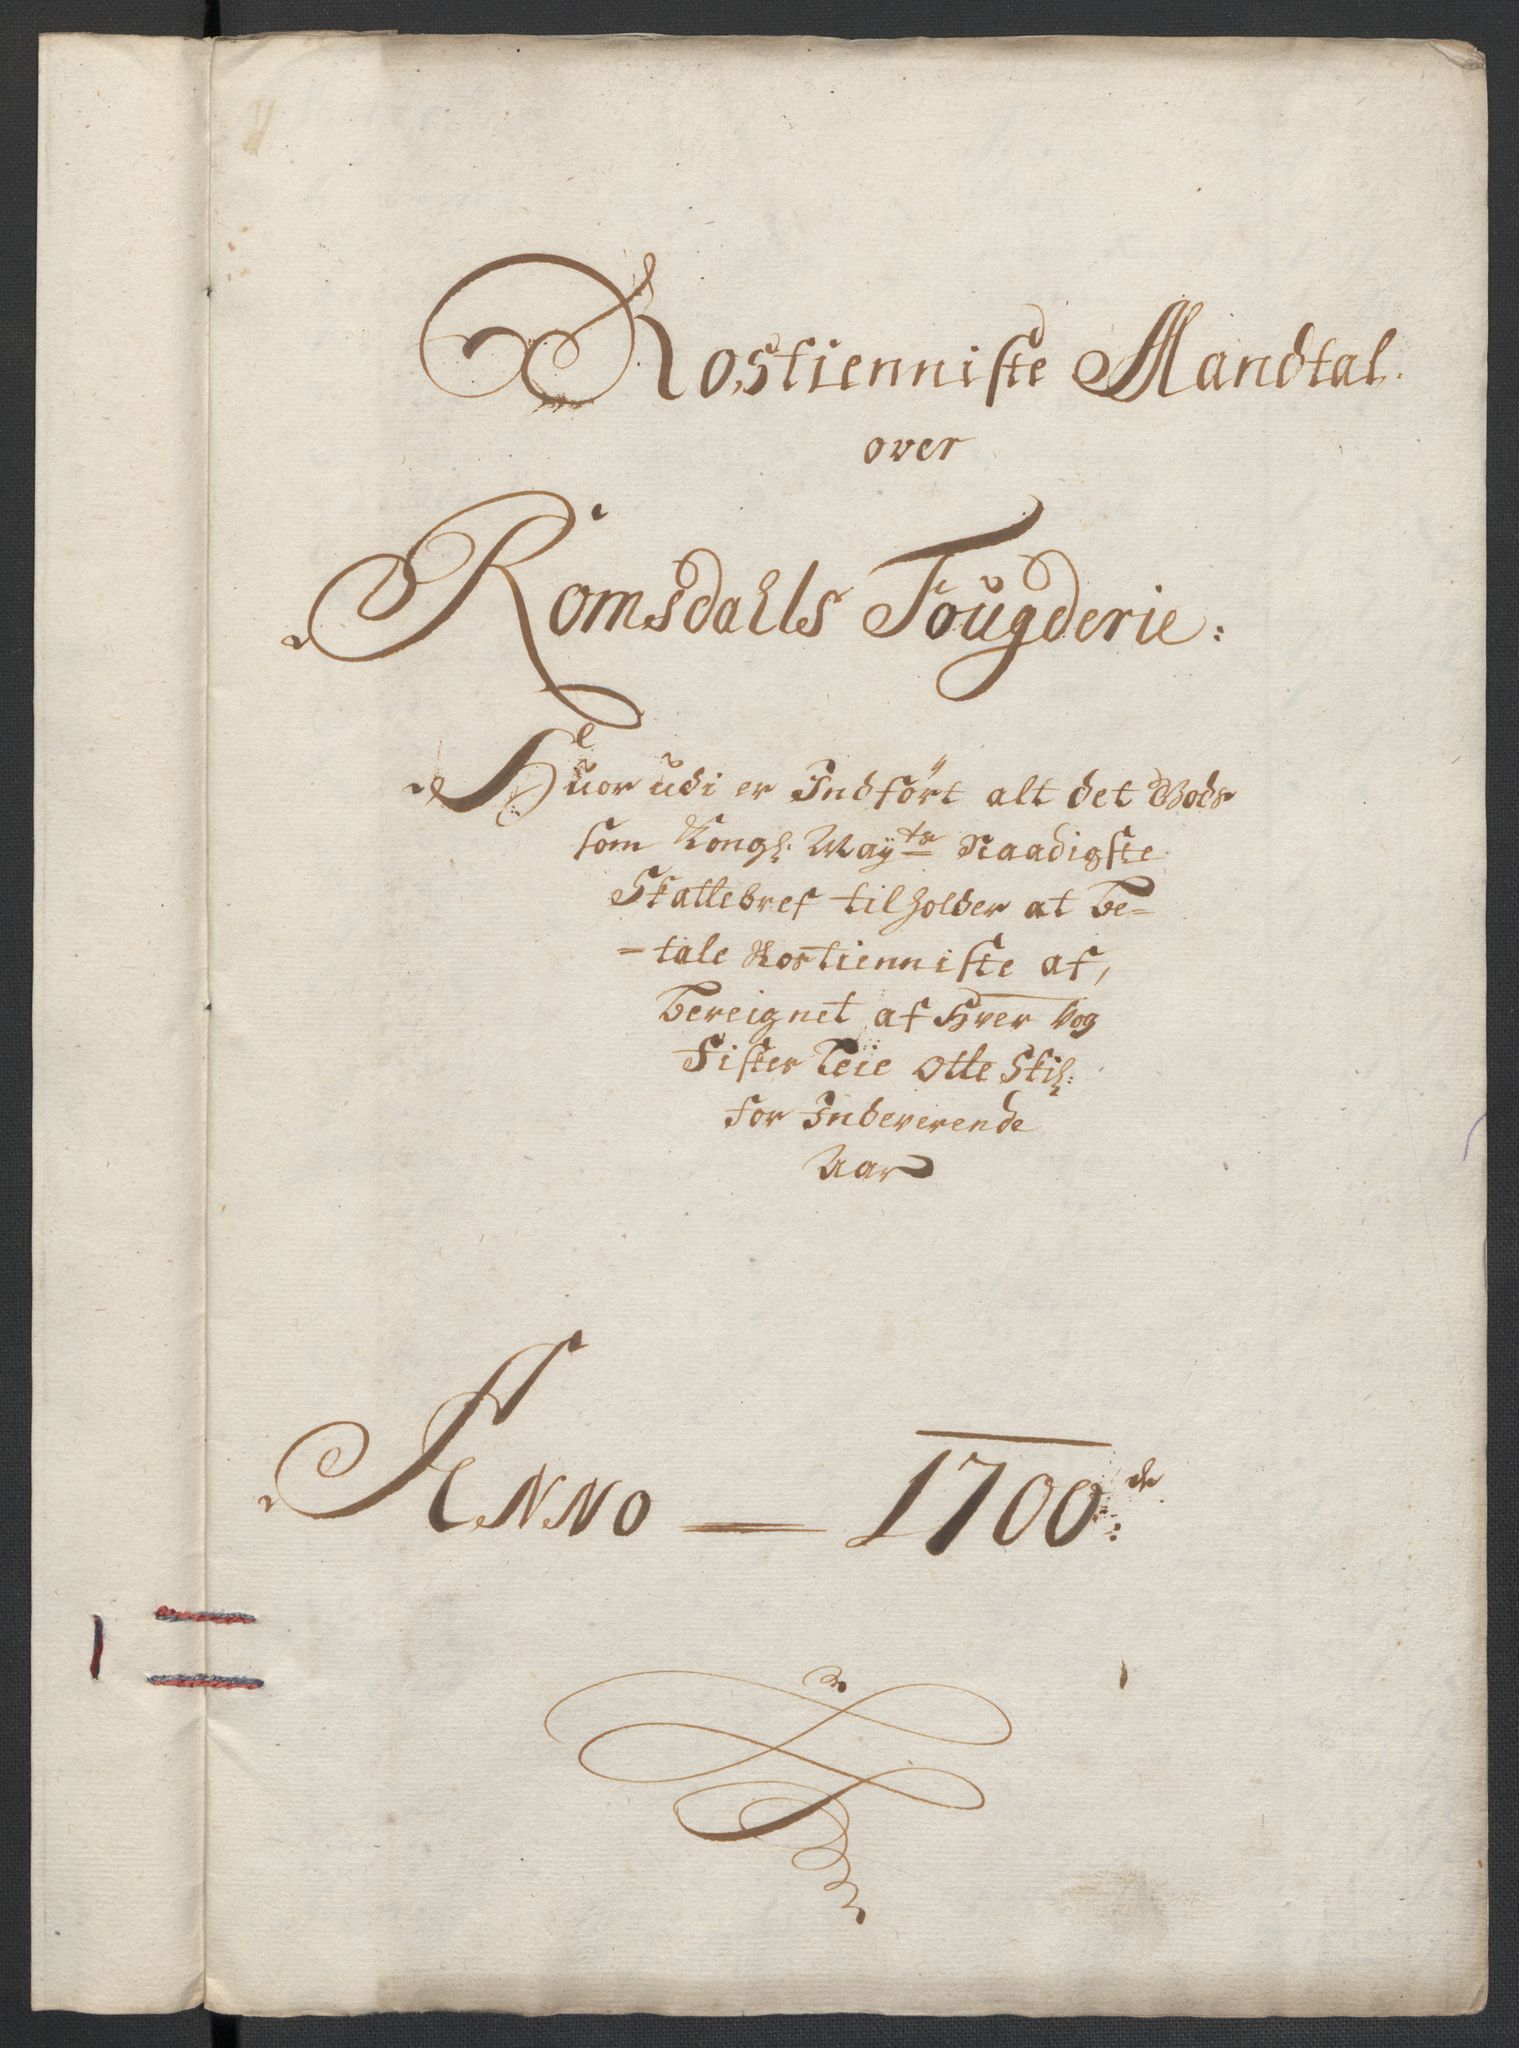 Rostienniste Mandtal.
over
Romsdahls Fougderie:
Huor udi er Indført alt det Gods
som Kongl: Mayts Naadigste
Skattebref tilholder at be=
=tale Rostienniste af,
bereignet af Hver Vog
Fister Leie Otte Skil:
for Indeverende
Aar
Anno — 1700de: